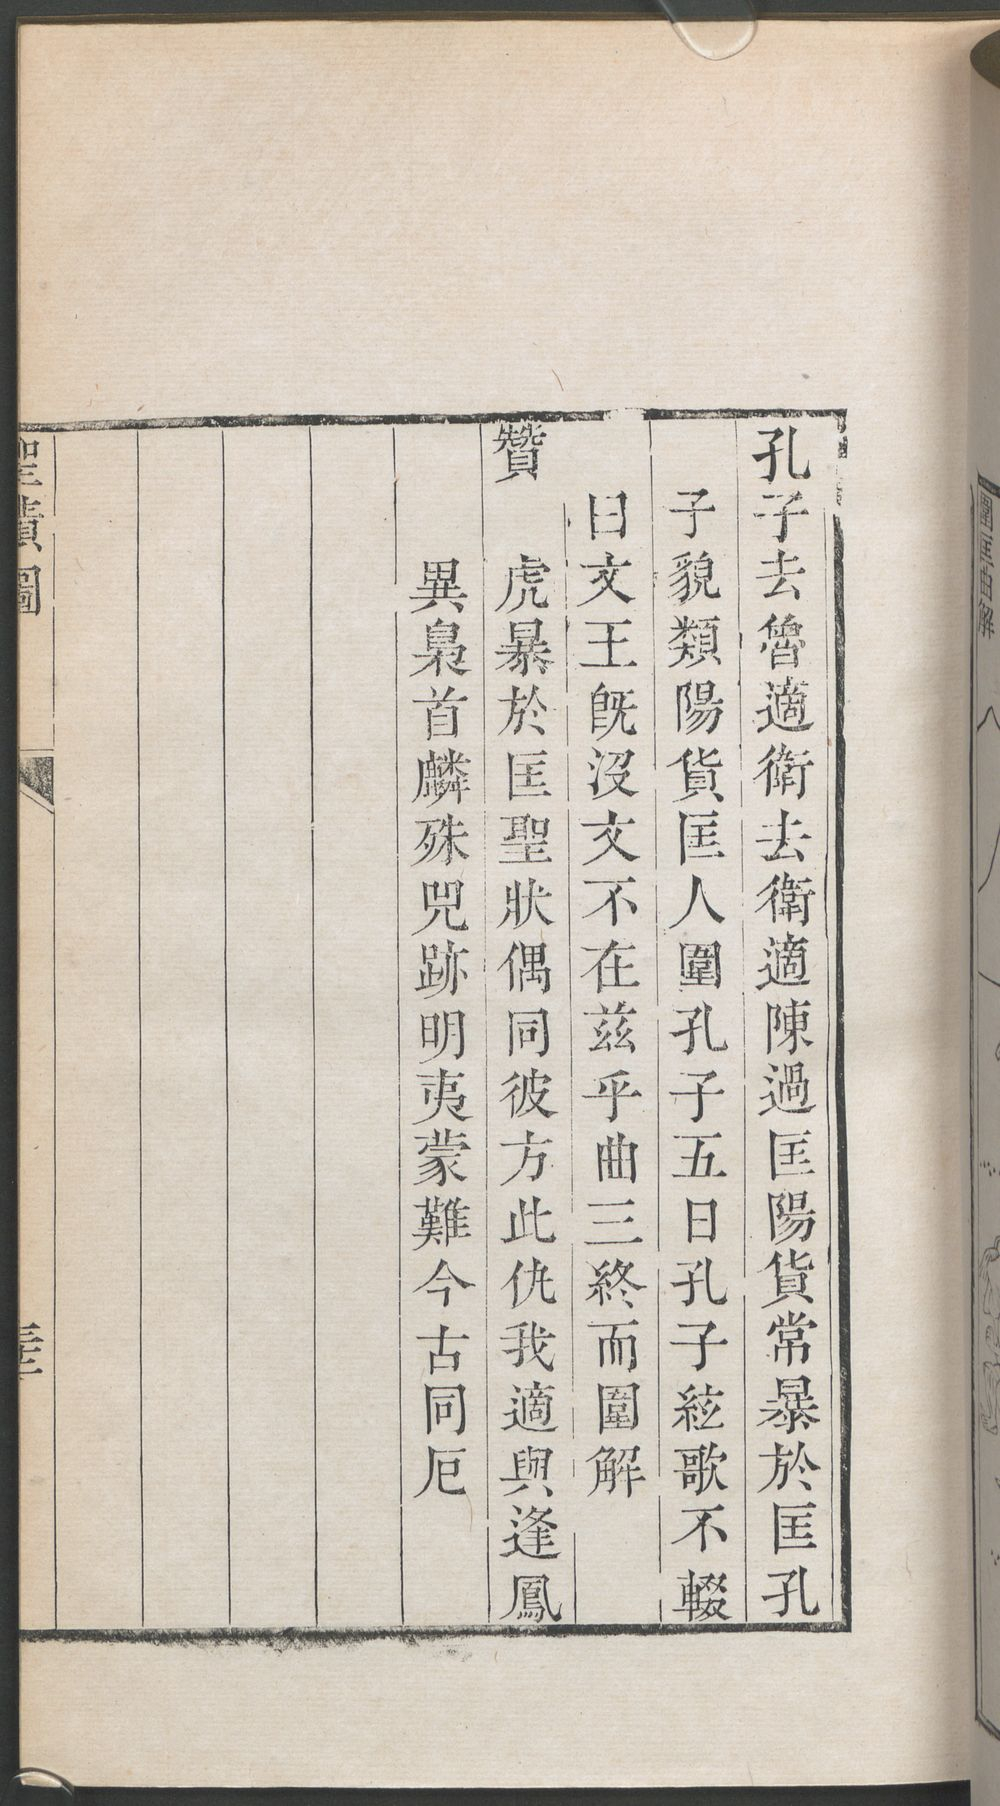 圍匡曲解
孔子去魯適衛去衛適陳過匡陽貨常暴於匡孔
子貌類陽貨匡人圍孔子五日孔子絃歌不輟
曰文王既没文不在茲乎曲三終而圍解
贊 虎暴於匡聖狀偶同彼方此仇我適與逢鳳
異梟首麟殊兕跡明夷蒙難今古同厄
聖蹟圖